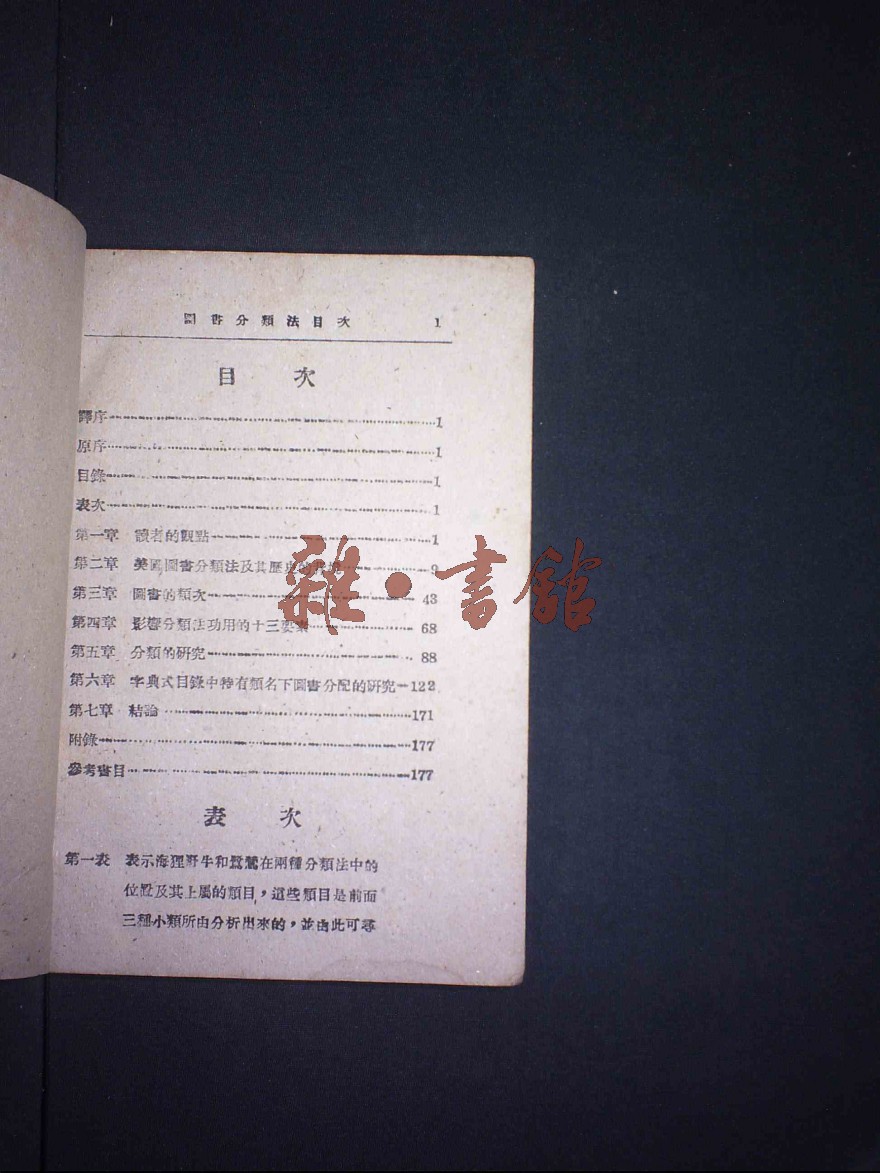 圖書分類法目次 1
目 次
譯序 1
原序 1
目錄 1
表次 1
第一章 讀者的觀點 1
第二章 美國圖書分類法及其歷史的 9
第三章 圖書的類次 43
第四章 影響分類法功用的十三要素 68
第五章 分類的研究 88
第六章 字典式目錄中特有類名下圖書分配的研究 122
第七章 結論 171
附錄 177
參考書目 177
表 次
第一表 表示海狸野牛和鷺鷥在兩種分類法中的
位置及其上屬的類目，這些類目是前面
三種小類所由分析出來的，並由此可尋
雜·書館